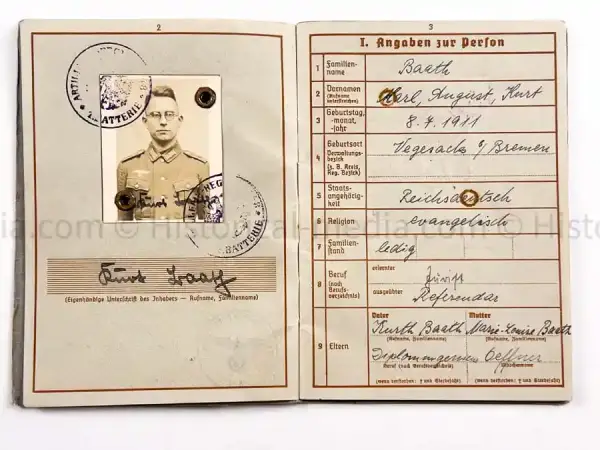 2
BATTERIE
BATTERIE
Kurt Baath
(Eigenhändige Unterschrift des Inhabers — Rufname, Familienname)
3
I. Angaben zur Person
1 Familien-
name
Baath
2 Vornamen
(Rufname
unterstreichen)
Karl, August, Kurt
3 Geburtstag,
-monat,
-jahr
8.7.1911
4 Geburtsort
Verwaltungs-
bezirk
(z. B. Kreis,
Reg. Bezirk)
Vegesack b/ Bremen
5 Staats-
angehörig-
keit
Reichsdeutsch
6 Religion
evangelisch
7 Familien-
stand
ledig
8 Beruf
(nach
Berufs-
verzeichnis)
erlernter
Jurist
ausgeübter
Referendar
9 Eltern
Vater
Kurth Baath
(Rufname, Familienname)
Diplomingenieur
Beruf (nach Berufsverzeichnis)
(wenn verstorben: † und Sterbejahr)
Mutter
Marie-Louise Baath
(Rufname, Familienname)
Oeffner
(Mädchenname)
(wenn verstorben: † und Sterbejahr)
ia.com © Historical-media.com © Histo